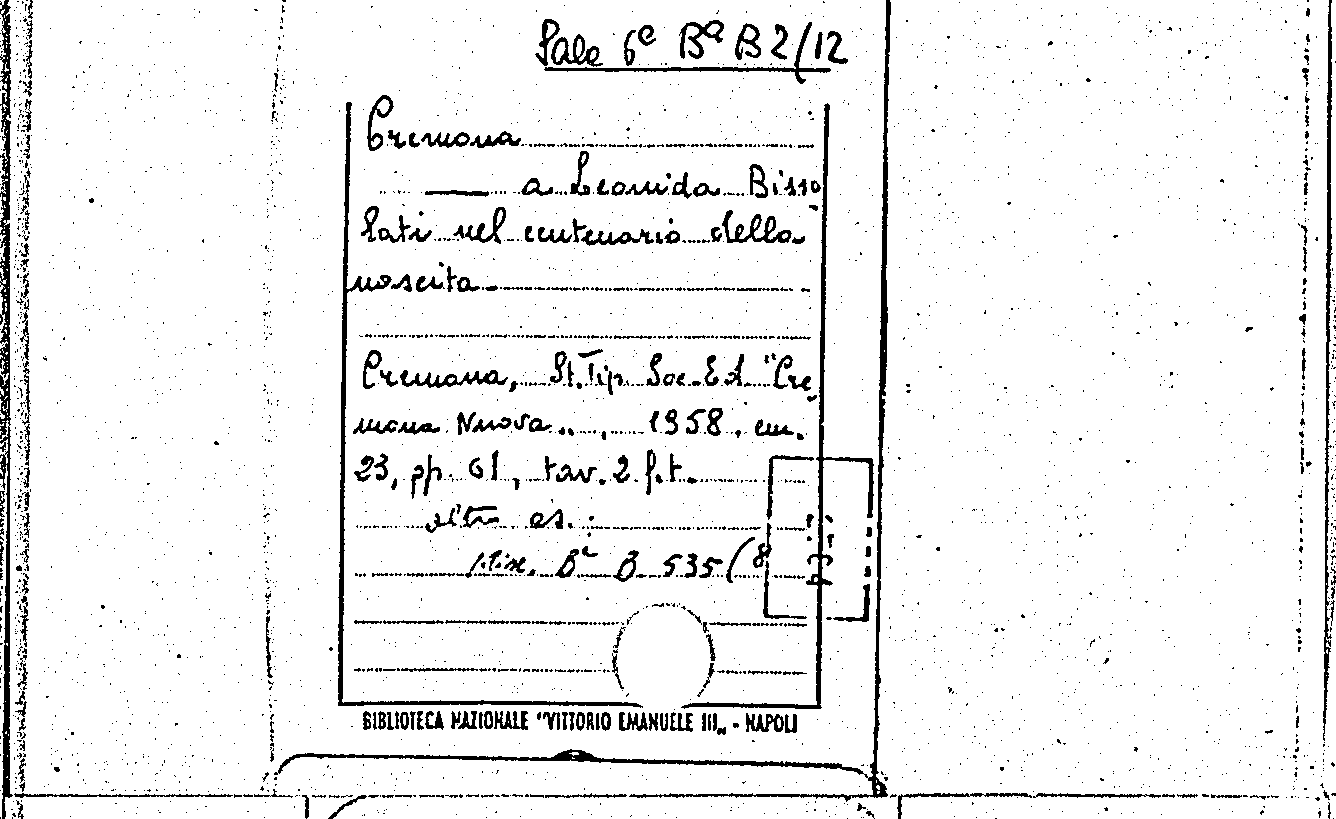 Sala 6ª Bª B 2/12
Cremona
— a Leonida Bisso-
lati nel centenario della
nascita.
Cremona, St. Tip. Soc. Ed. "Cre-
mona Nuova„, 1958, cm.
23, pp. 61, tav. 2 f.t.
altro es.:
Misc. Bª B. 535(8
BIBLIOTECA NAZIONALE "VITTORIO EMANUELE III„ - NAPOLI